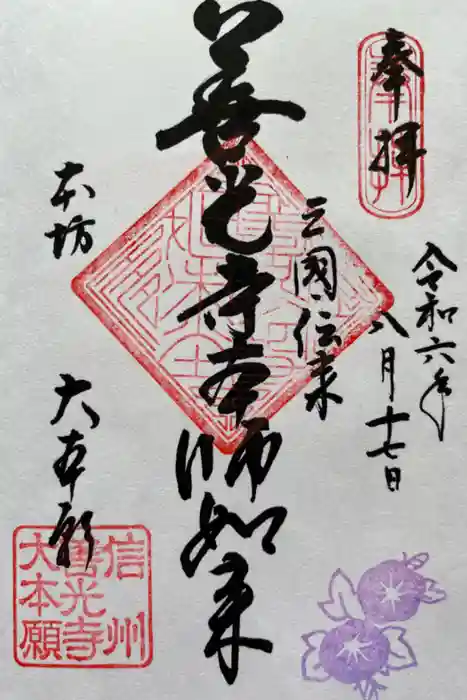 奉拝
令和六年
八月十七日
三國伝来
善光寺本師如来
本坊 大本願
信州
善光寺
大本願